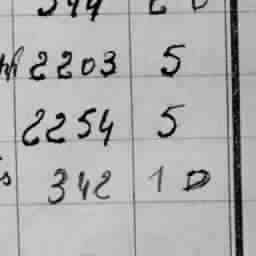 2203 5
2254 5
342 10